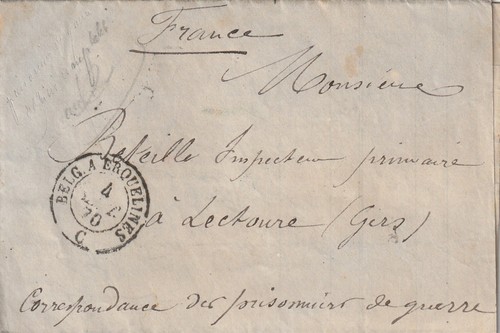 France
Monsieur
Reteille Inspecteur primaire
à Lectoure (Gers)
Correspondance des prisonniers de guerre
BELG. A ERQUELINES
4
70
C